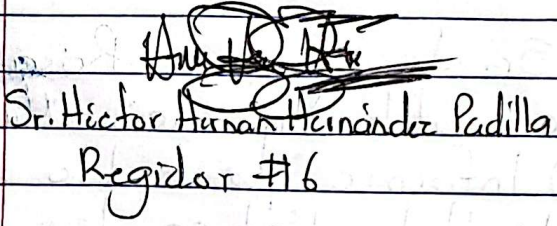 Sr. Hector Hernan Hernández Padilla
Regidor #6